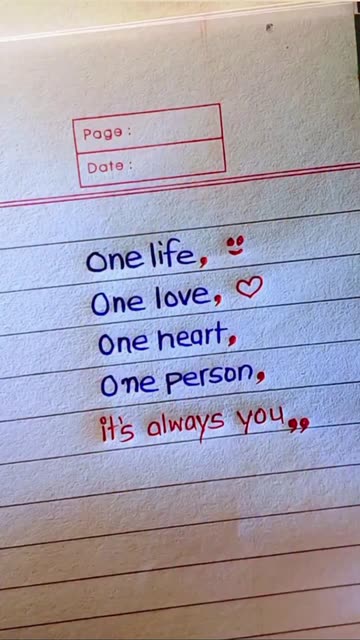 Page :
Date :
One life,
One love,
One heart,
One person,
it's always you,,